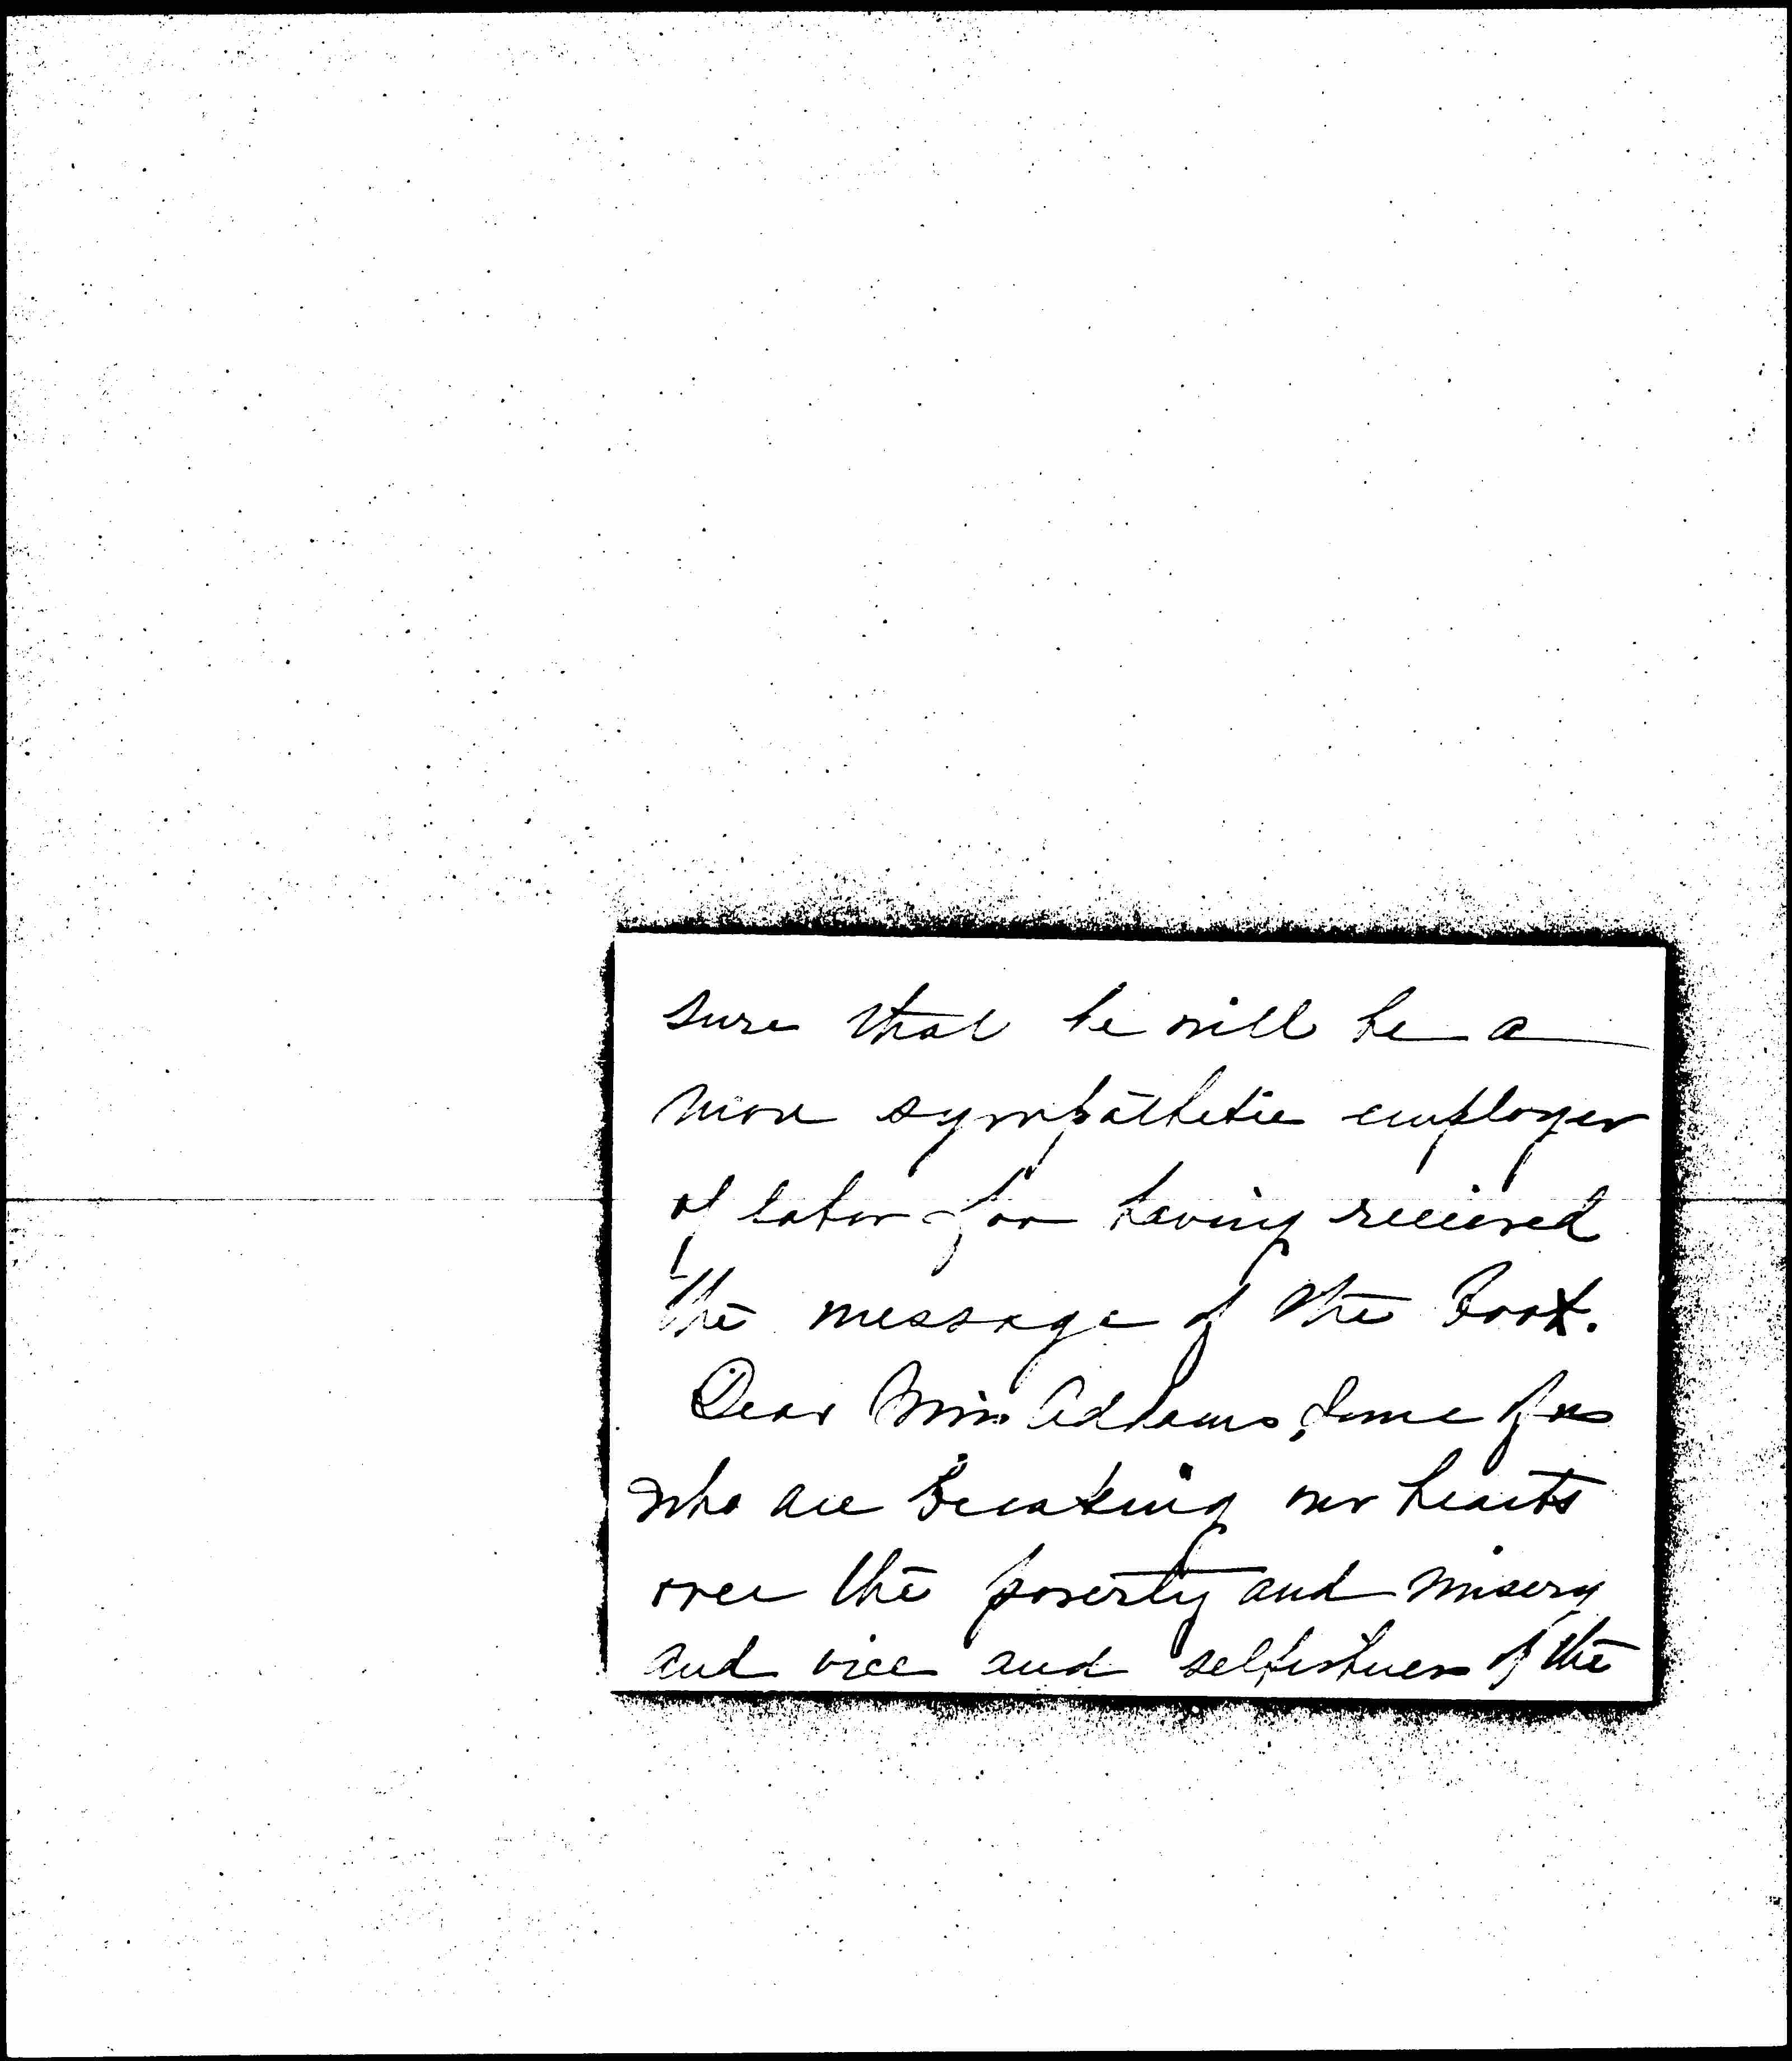 sure that he will be a
more sympathetic employer
of labor for having received
the message of the book.
Dear Miss Addams, some of us
who are breaking our hearts
over the poverty and misery
and vice and selfishness of the